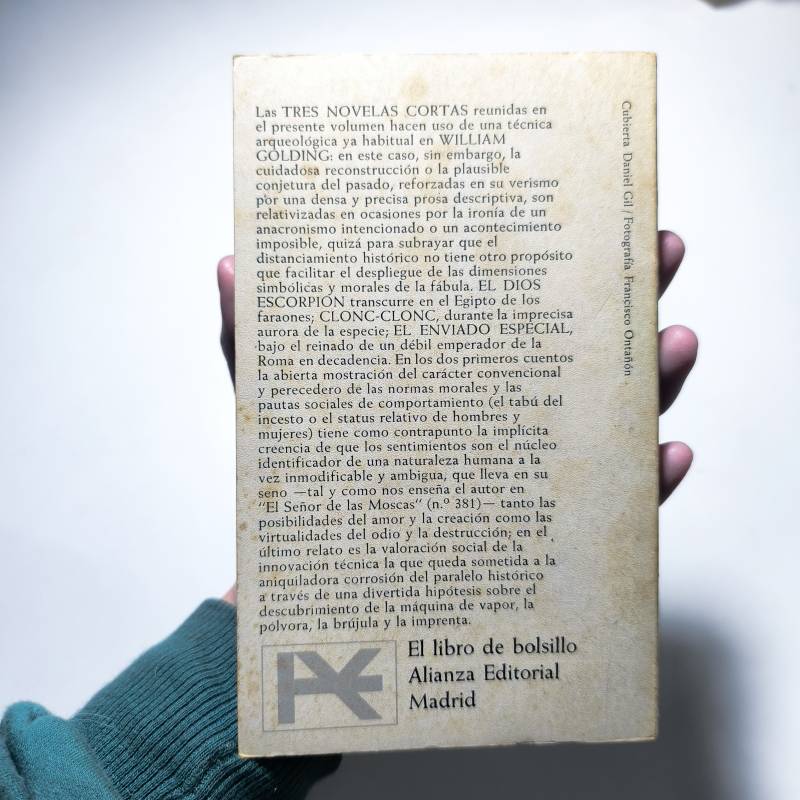 Las TRES NOVELAS CORTAS reunidas en
el presente volumen hacen uso de una técnica
arqueológica ya habitual en WILLIAM
GOLDING: en este caso, sin embargo, la
cuidadosa reconstrucción o la plausible
conjetura del pasado, reforzadas en su verismo
por una densa y precisa prosa descriptiva, son
relativizadas en ocasiones por la ironía de un
anacronismo intencionado o un acontecimiento
imposible, quizá para subrayar que el
distanciamiento histórico no tiene otro propósito
que facilitar el despliegue de las dimensiones
simbólicas y morales de la fábula. EL DIOS
ESCORPION transcurre en el Egipto de los
faraones; CLONC-CLONC, durante la imprecisa
aurora de la especie; EL ENVIADO ESPECIAL,
bajo el reinado de un débil emperador de la
Roma en decadencia. En los dos primeros cuentos
la abierta mostración del carácter convencional
y perecedero de las normas morales y las
pautas sociales de comportamiento (el tabú del
incesto o el status relativo de hombres y
mujeres) tiene como contrapunto la implícita
creencia de que los sentimientos son el núcleo
identificador de una naturaleza humana a la
vez inmodificable y ambigua, que lleva en su
seno —tal y como nos enseña el autor en
"El Señor de las Moscas" (n.º 381)— tanto las
posibilidades del amor y la creación como las
virtualidades del odio y la destrucción; en el
último relato es la valoración social de la
innovación técnica la que queda sometida a la
aniquiladora corrosión del paralelo histórico
a través de una divertida hipótesis sobre el
descubrimiento de la máquina de vapor, la
pólvora, la brújula y la imprenta.
El libro de bolsillo
Alianza Editorial
Madrid
Cubierta Daniel Gil / Fotografía Francisco Ontañón